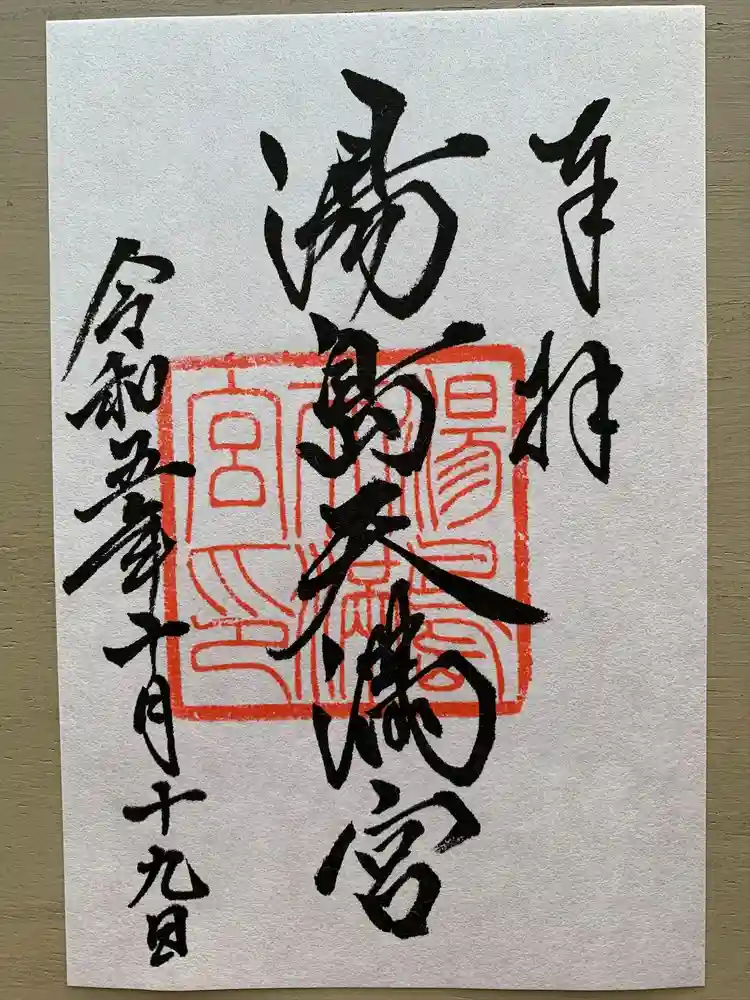 奉拝
湯島天満宮
湯島天満宮印
令和五年十月十九日